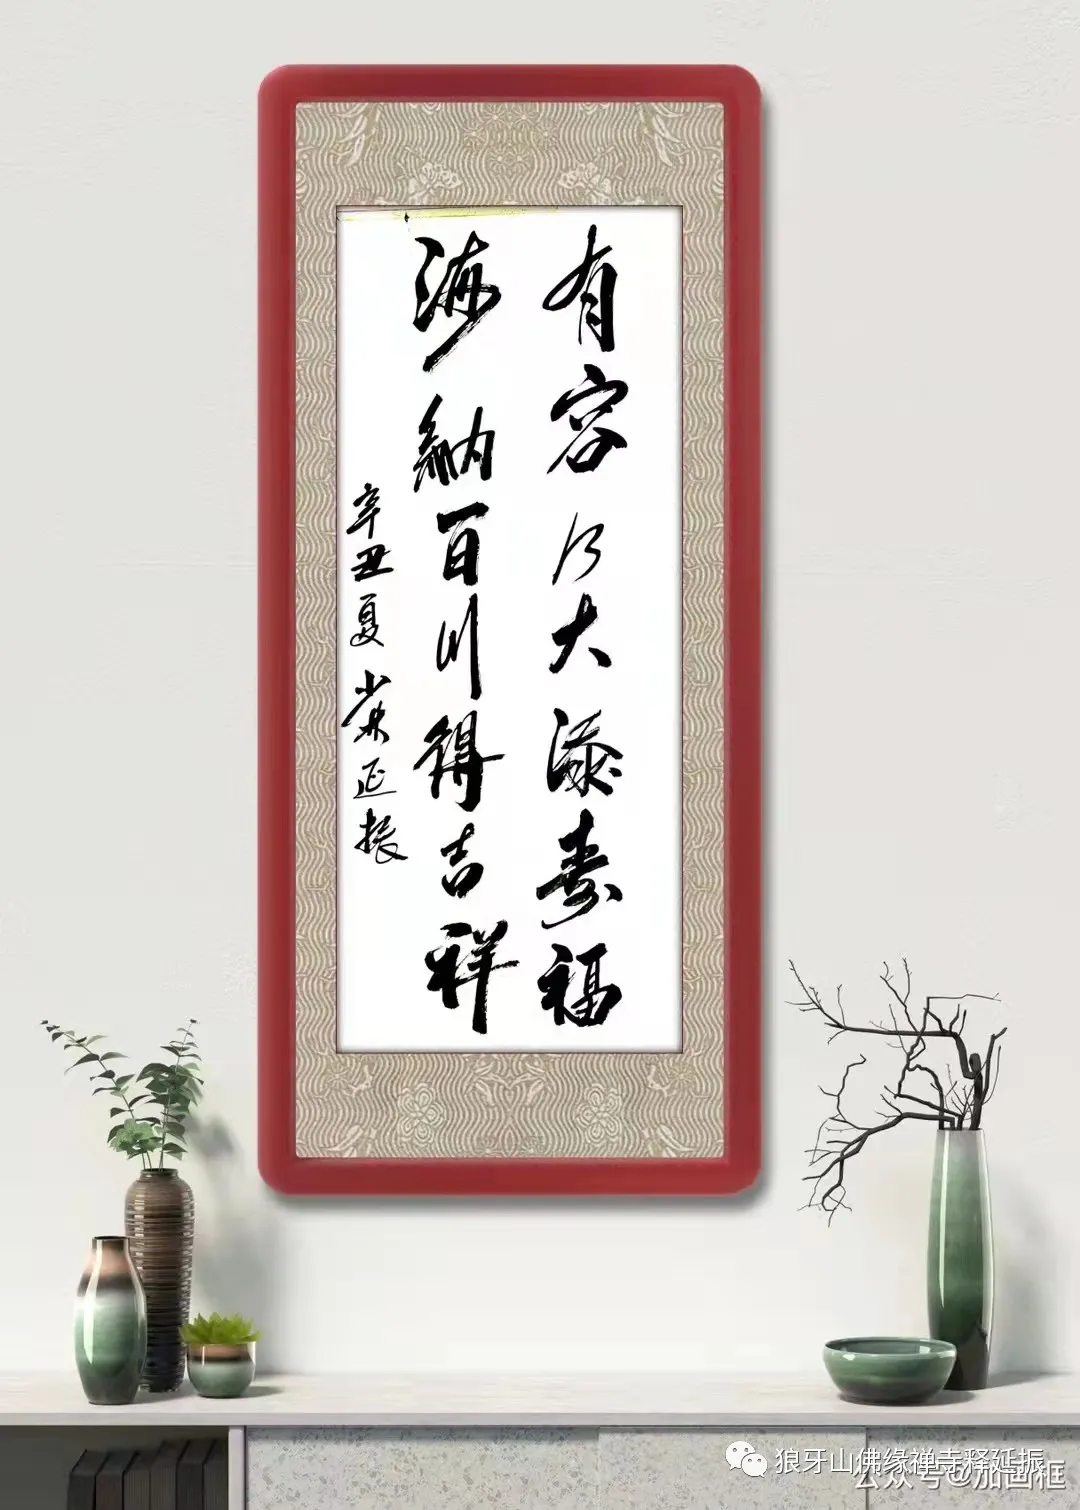 有容乃大添寿福
海纳百川得吉祥
辛丑夏少林延振
狼牙山佛缘禅寺释延振
公众号@加画框